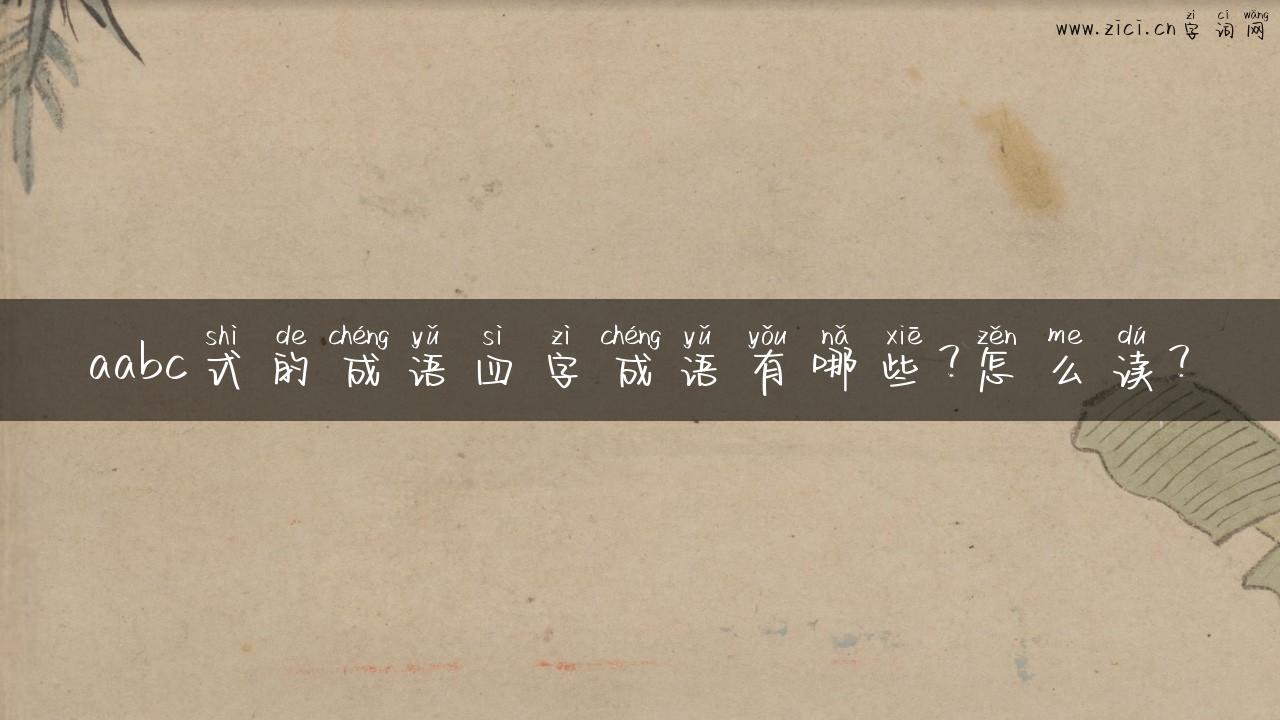 zì cí wǎng
www.zici.cn 字词网
shì de chéng yǔ sì zì chéng yǔ yǒu nǎ xiē zěn me dú
aabc式的成语四字成语有哪些？怎么读？